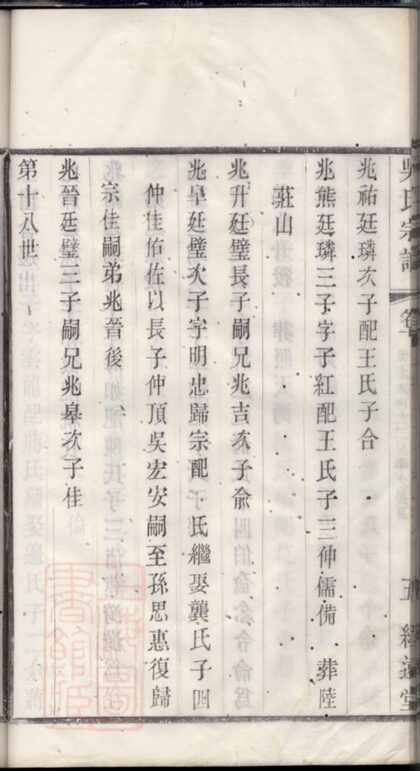 吳氏宗譜
卷
五經
兆祐廷璘次子配王氏子合
兆熊廷璘三子字子紅配王氏子三仲儒備 葬陸
莊山
兆升廷璧長子嗣兄兆吉次子俞
兆皐廷璧次子字明忠歸宗配 氏繼娶龔氏子四
仲佳佑佐以長子仲頂吳宏安嗣至孫思惠復歸
宗佳嗣弟兆晉後
兆晉廷璧三子嗣兄兆皋次子佳
第十八世